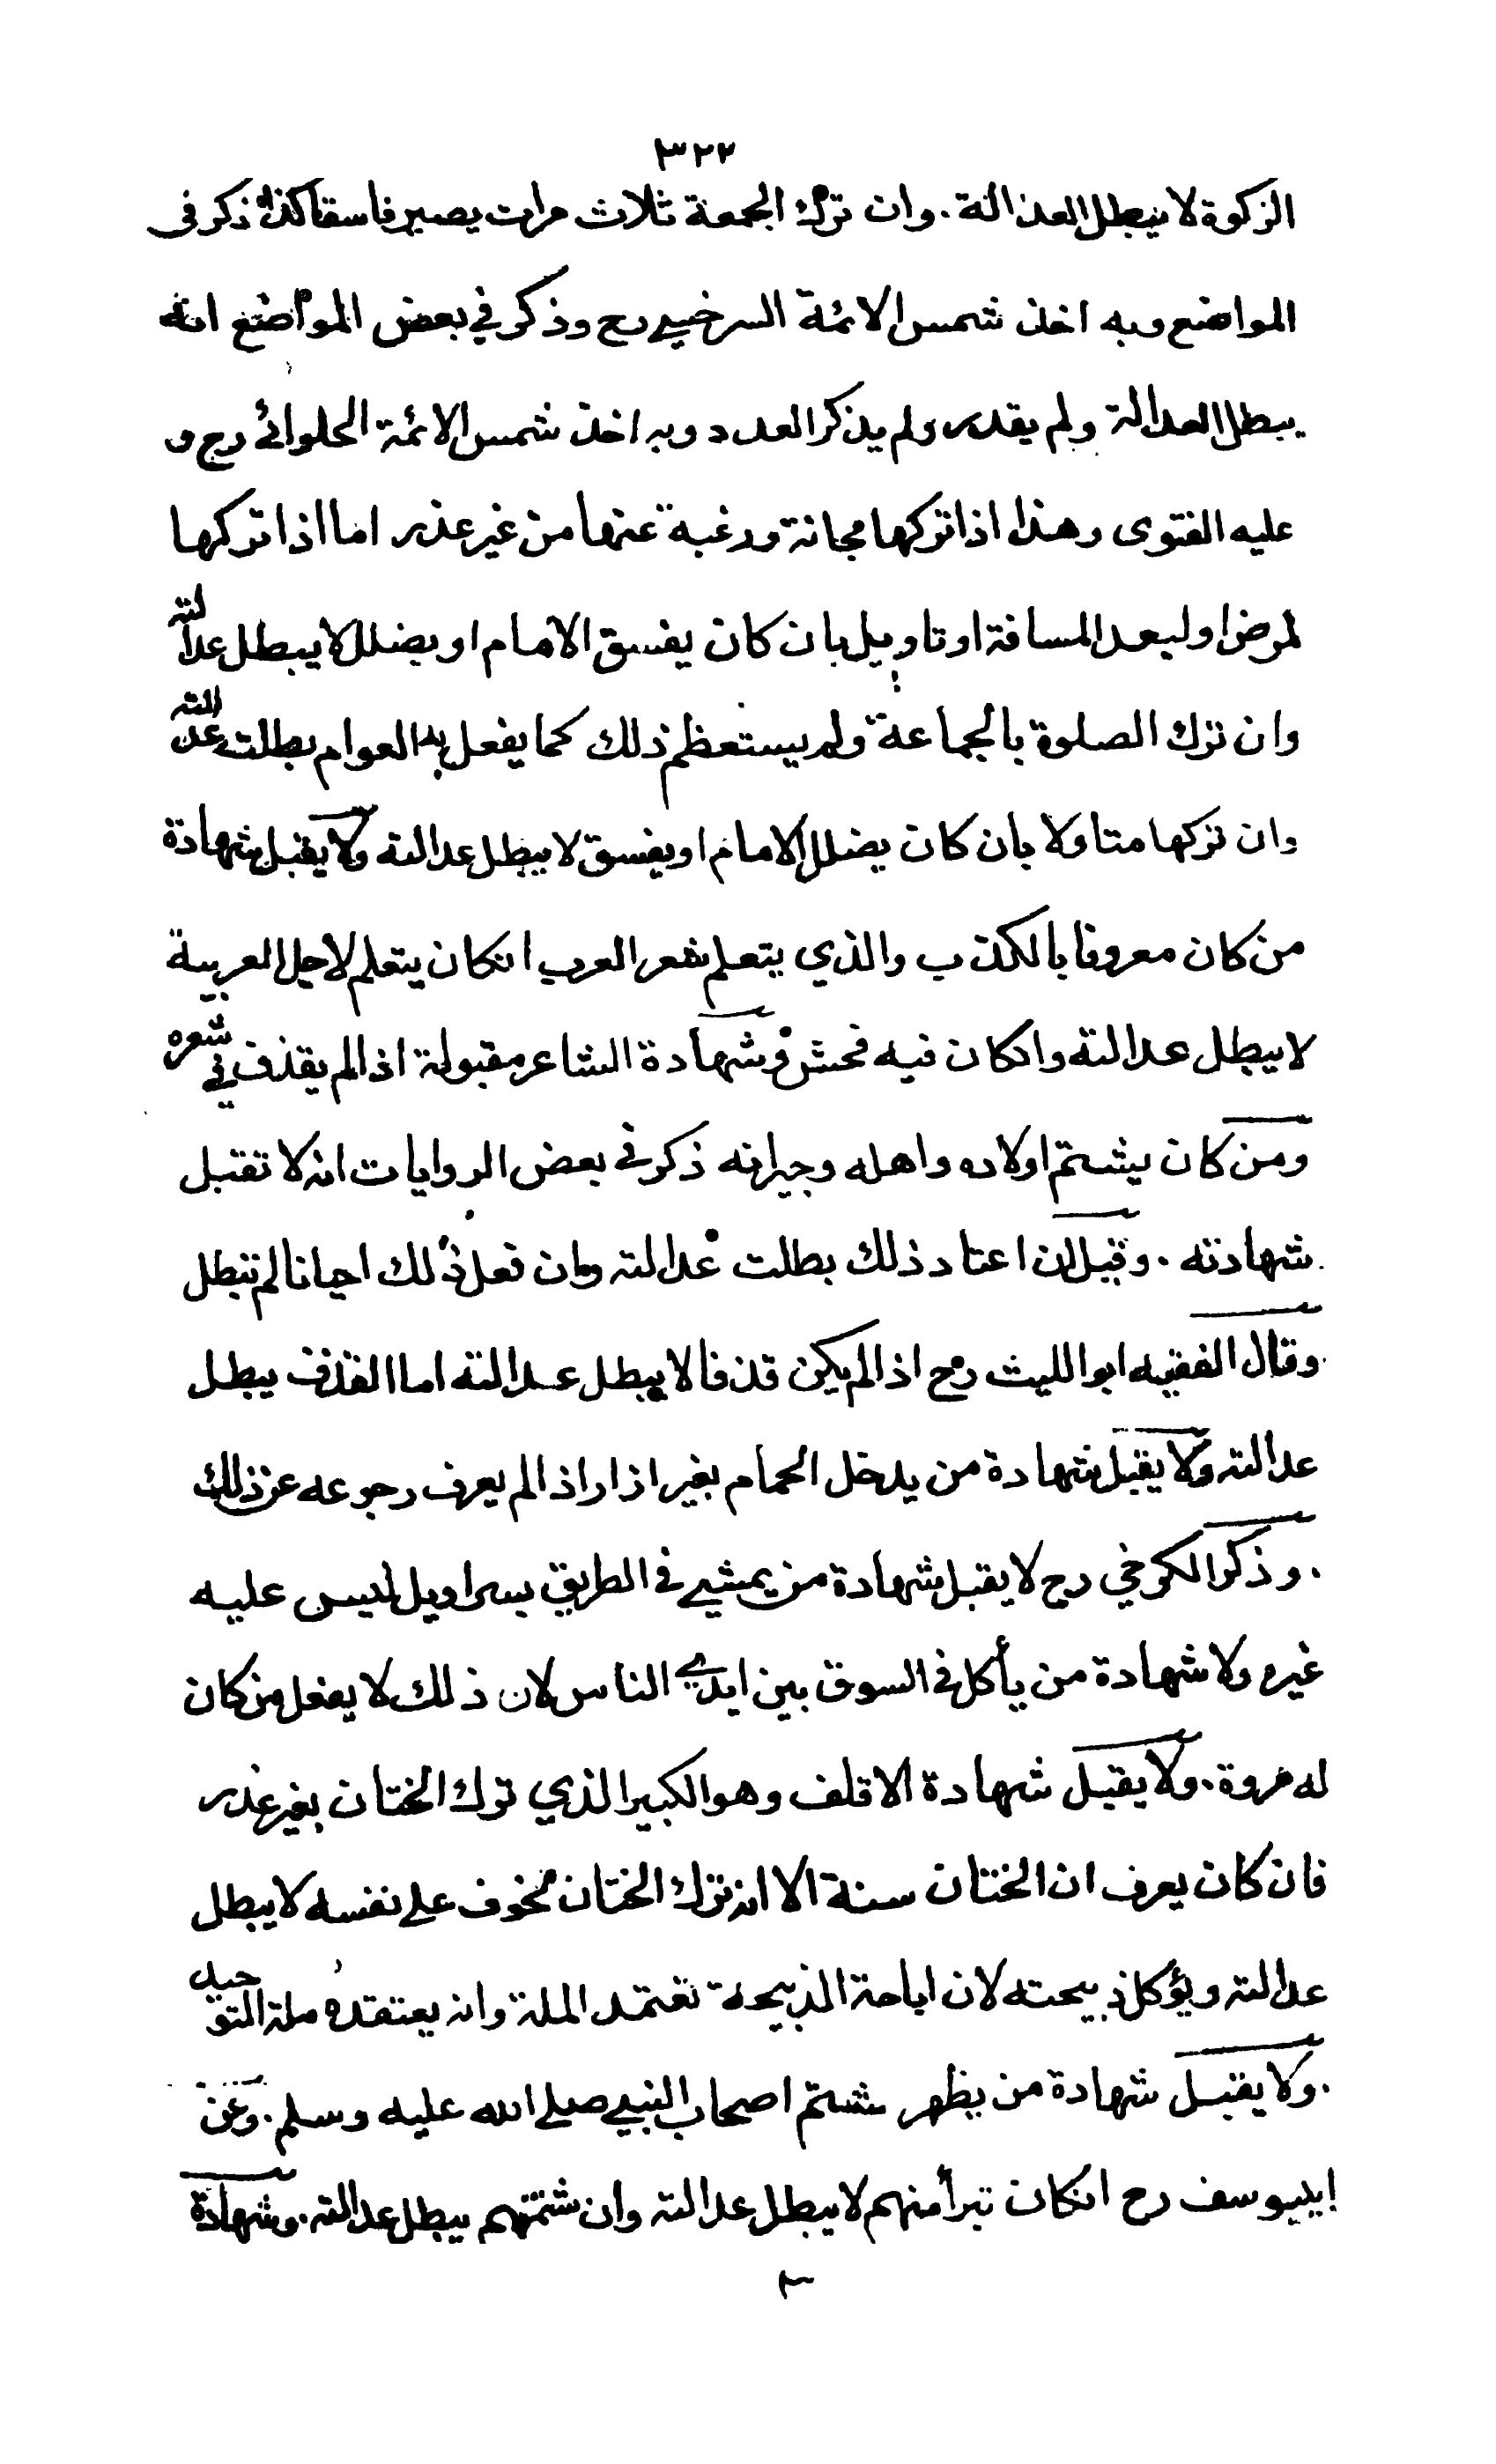 ٣٢٢
الزكوة لا يبطل العدالة . وان ترك الجمعة ثلاث مرات يصير فاسقا كذا ذكر في
المواضع وبه اخذ شمس الائمة السرخسي رح وذكر في بعض المواضع انه
يبطل العدالة ولم يقدر ولم يذكر العدد وبه اخذ شمس الائمة الحلوائي رح و
عليه الفتوى وهذا اذا تركها مجانة ورغبة عنها من غير عذر اما اذا تركها
لمرض او لبعد المسافة او تاويل بان كان يفسق الامام او يضلل لا يبطل عدالته
وان ترك الصلوة بالجماعة ولم يستعظم ذلك كما يفعل به العوام بطلت عدالته
وان تركها متاولا بان كان يضلل الامام او يفسق لا يبطل عدالته ولا يقبل شهادة
من كان معروفا بالكذب والذي يتعلم شعر العرب انكان يتعلم لاجل العربية
لا يبطل عدالته وانكان فيه فحش وشهادة الشاعر مقبولة اذا لم يقذف في شعره
ومن كان يشتم اولاده واهله وجيرانه ذكر في بعض الروايات انه لا تقبل
شهادته . وقيل ان اعتاد ذلك بطلت عدالته وان فعل ذلك احيانا لم تبطل
وقال الفقيه ابو الليث رح اذا لم يكن قذفا لا يبطل عدالته اما القذف يبطل
عدالته ولا يقبل شهادة من يدخل الحمام بغير ازار اذا لم يعرف رجوعه عن ذلك
. وذكر الكرخي رح لا يقبل شهادة من يمشي في الطريق بسراويل ليس عليه
غيره ولا شهادة من يأكل في السوق بين ايدي الناس لان ذلك لا يفعل من كان
له مروة . ولا يقبل شهادة الاقلف وهو الكبير الذي ترك الختان بغير عذر
فان كان يعرف ان الختان سنة الا انه ترك الختان لخوف على نفسه لا يبطل
عدالته ويؤكل ذبيحته لان اباحة الذبيحة تعتمد الملة وانه يعتقده ملة التوحيد
. ولا يقبل شهادة من يظهر شتم اصحاب النبي صلى الله عليه وسلم . وعن
ابييوسف رح انكان تبرأ منهم لا يبطل عدالته وان شتمهم يبطل عدالته . وشهادة